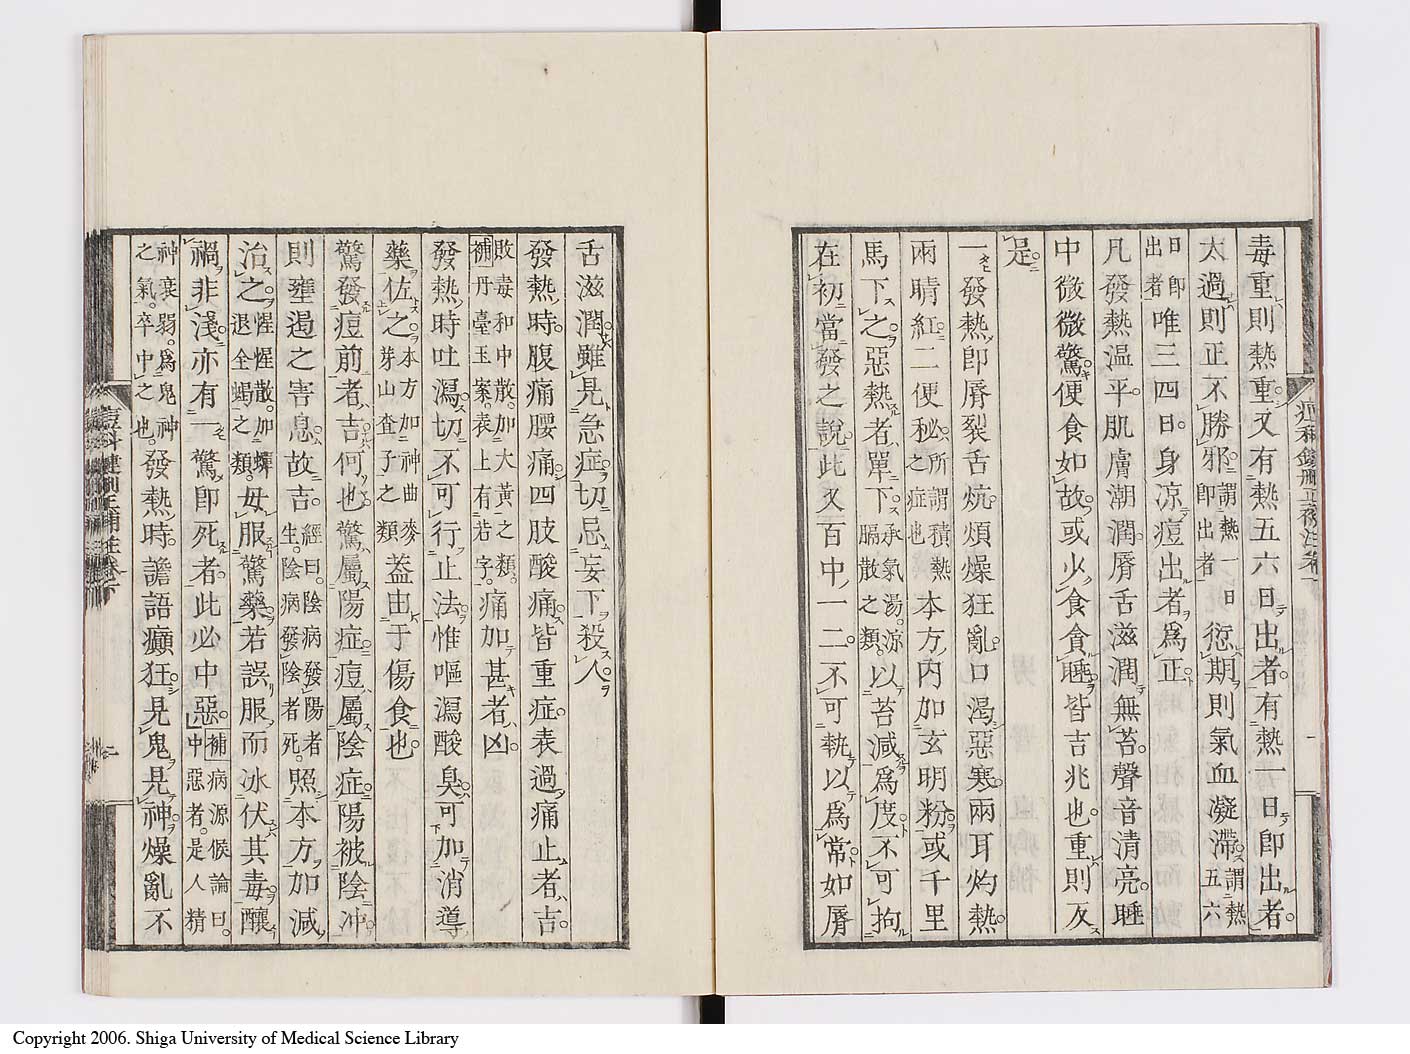 毒重則熱重又有熱五六日出者有熱一日即出者
太過則正不勝邪謂熱一日即出者愆期則氣血凝滯謂熱五六
日即出者唯三四日身涼痘出者為正
凡發熱温平肌膚潮潤脣舌滋潤無苔聲音清亮睡
中微微驚便食如故或少食貪睡皆吉兆也重則反
是
一發熱即脣裂舌炕煩燥狂亂口渴惡寒兩耳灼熱
兩睛紅二便秘所謂積熱之症也本方內加玄明粉或千里
馬下之惡熱者單下承氣湯涼膈散之類以苔減為度不可拘
在初當發之說此又百中一二不可執以為常如脣
舌滋潤雖見急症切忌妄下殺人
發熱時腹痛腰痛四肢酸痛皆重症表過痛止者吉
敗毒和中散加大黃之類痛加甚者凶
補丹臺玉案表上有若字
發熱時吐瀉切不可行止法惟嘔瀉酸臭可加消導
藥佐之本方加神曲麥芽山查子之類蓋由于傷食也
驚發痘前者吉何也驚屬陽症痘屬陰症陽被陰冲
則壅遏之害息故吉經曰陰病發陽者生陰病發陰者死照本方加減
治之惺惺散加蟬退全蝎之類毋服驚藥若誤服而冰伏其毒釀
禍非淺亦有一驚即死者此必中惡補病源候論曰中惡者是人精
神衰弱為鬼神之氣卒中之也發熱時譫語癲狂見鬼見神燥亂不
Copyright 2006. Shiga University of Medical Science Library